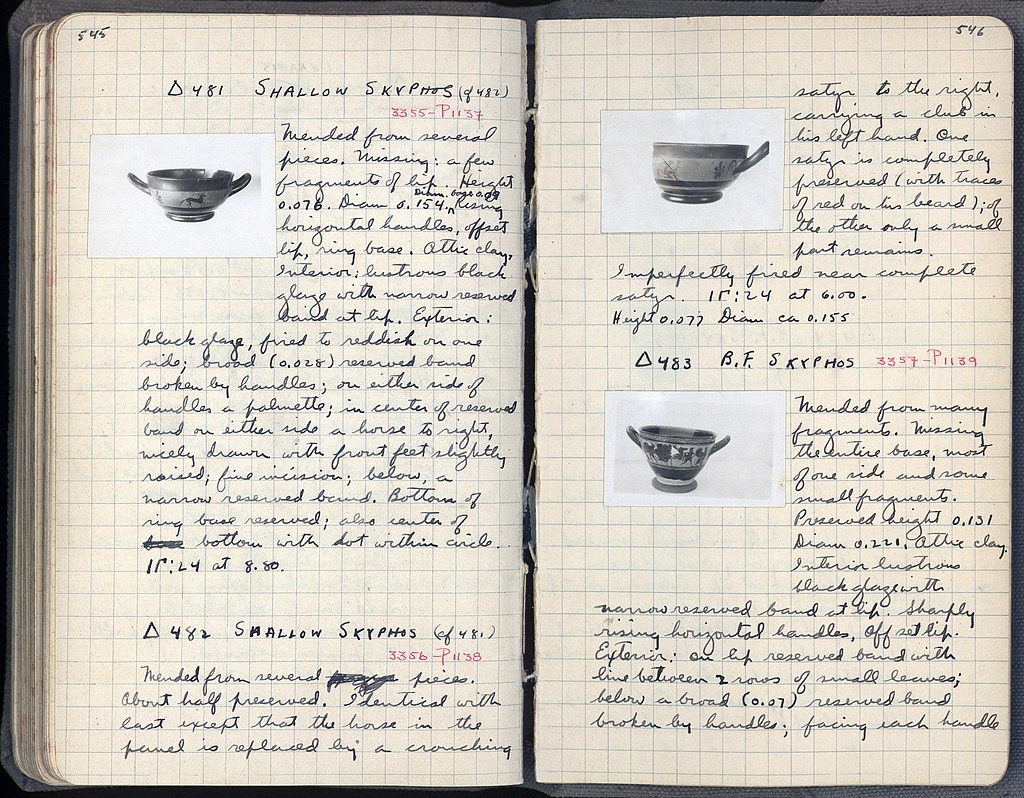 545
Δ 481 SHALLOW SKYPHOS (cf 482)
3355-P1137
Mended from several
pieces. Missing: a few
fragments of lip. Height
Diam. base 0.09
0.076. Diam 0.154. Rising
horizontal handles, offset
lip, ring base. Attic clay,
Interior: lustrous black
glaze with narrow reserved
band at lip. Exterior:
black glaze, fired to reddish on one
side; broad (0.028) reserved band
broken by handles; on either side of
handles a palmette; in center of reserved
band on either side a horse to right,
nicely drawn with front feet slightly
raised; fine incision; below, a
narrow reserved band. Bottom of
ring base reserved; also center of
bottom with dot within circle.
ΙΓ:24 at 8.80.
Δ 482 SHALLOW SKYPHOS (cf 481)
3356-P1138
Mended from several pieces.
About half preserved. Identical with
last except that the horse in the
panel is replaced by a crouching
546
satyr to the right,
carrying a club in
his left hand. One
satyr is completely
preserved (with traces
of red on his beard); of
the other only a small
part remains.
Imperfectly fired near complete
satyr. ΙΓ:24 at 6.00.
Height 0.077 Diam ca 0.155
Δ 483 B.F. SKYPHOS 3357-P1139
Mended from many
fragments. Missing
the entire base, most
of one side and some
small fragments.
Preserved height 0.131
Diam 0.221. Attic clay.
Interior lustrous
black glaze with
narrow reserved band at lip. Sharply
rising horizontal handles, Off set lip.
Exterior: on lip reserved band with
line between 2 rows of small leaves;
below a broad (0.07) reserved band
broken by handles; facing each handle